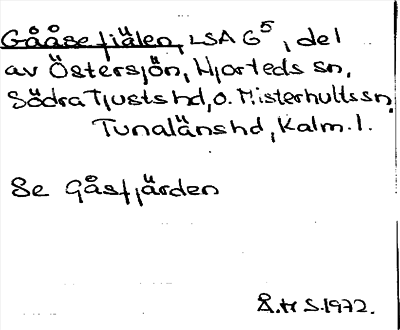 Gååsefjälen, LSA G5, del
av Östersjön, Hjorteds sn,
Södra Tjusts hd, o. Misterhults sn,
Tunaläns hd, Kalm. l.
Se Gåsfjärden
Å. tr S. 1972.